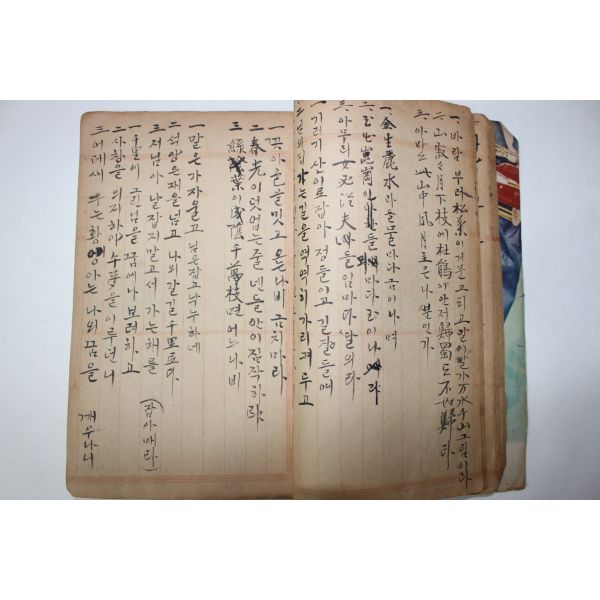 一、바람 부러 松葉이 거문고 되고 달이 발가 万水千山 그림이라
二、山寂々 月下枝에 杜鵑이 안저 歸蜀도 不如歸라
三、아마도 此山中 風月主은 나뿐인가
一 金生麗水라 들물마다 금이 나며
三、아무리 女必從夫 들 임마다 딸의랴
一 기러기 산이로 잡아 정들이고 길 들여
二 임의 집 가는 길을 역역히 가리켜 두고
一 꽃아 을 밋고 오는 나비 금치마라
二 春光이 덧업는 줄 넨들 안이 짐작하랴
三 綠葉이 成陰 千萬枝면 어느 나비
一 말은 가자 울고 님은 잡고 낙누하네
二 석양은 재을 넘고 나의 갈길 千里로다
三 저 님아 날 잡지 말고서 가는 해를 (잡아매라)
一 千里에 그린 님을 꿈에나 보려하고
二 사창을 의지하야 수夢을 이루던니
三 어데새 우는 황 아는 나의 꿈을 깨우나니